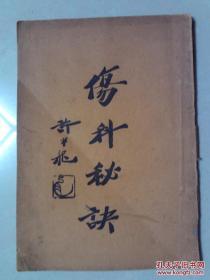 傷科秘訣
許半龍